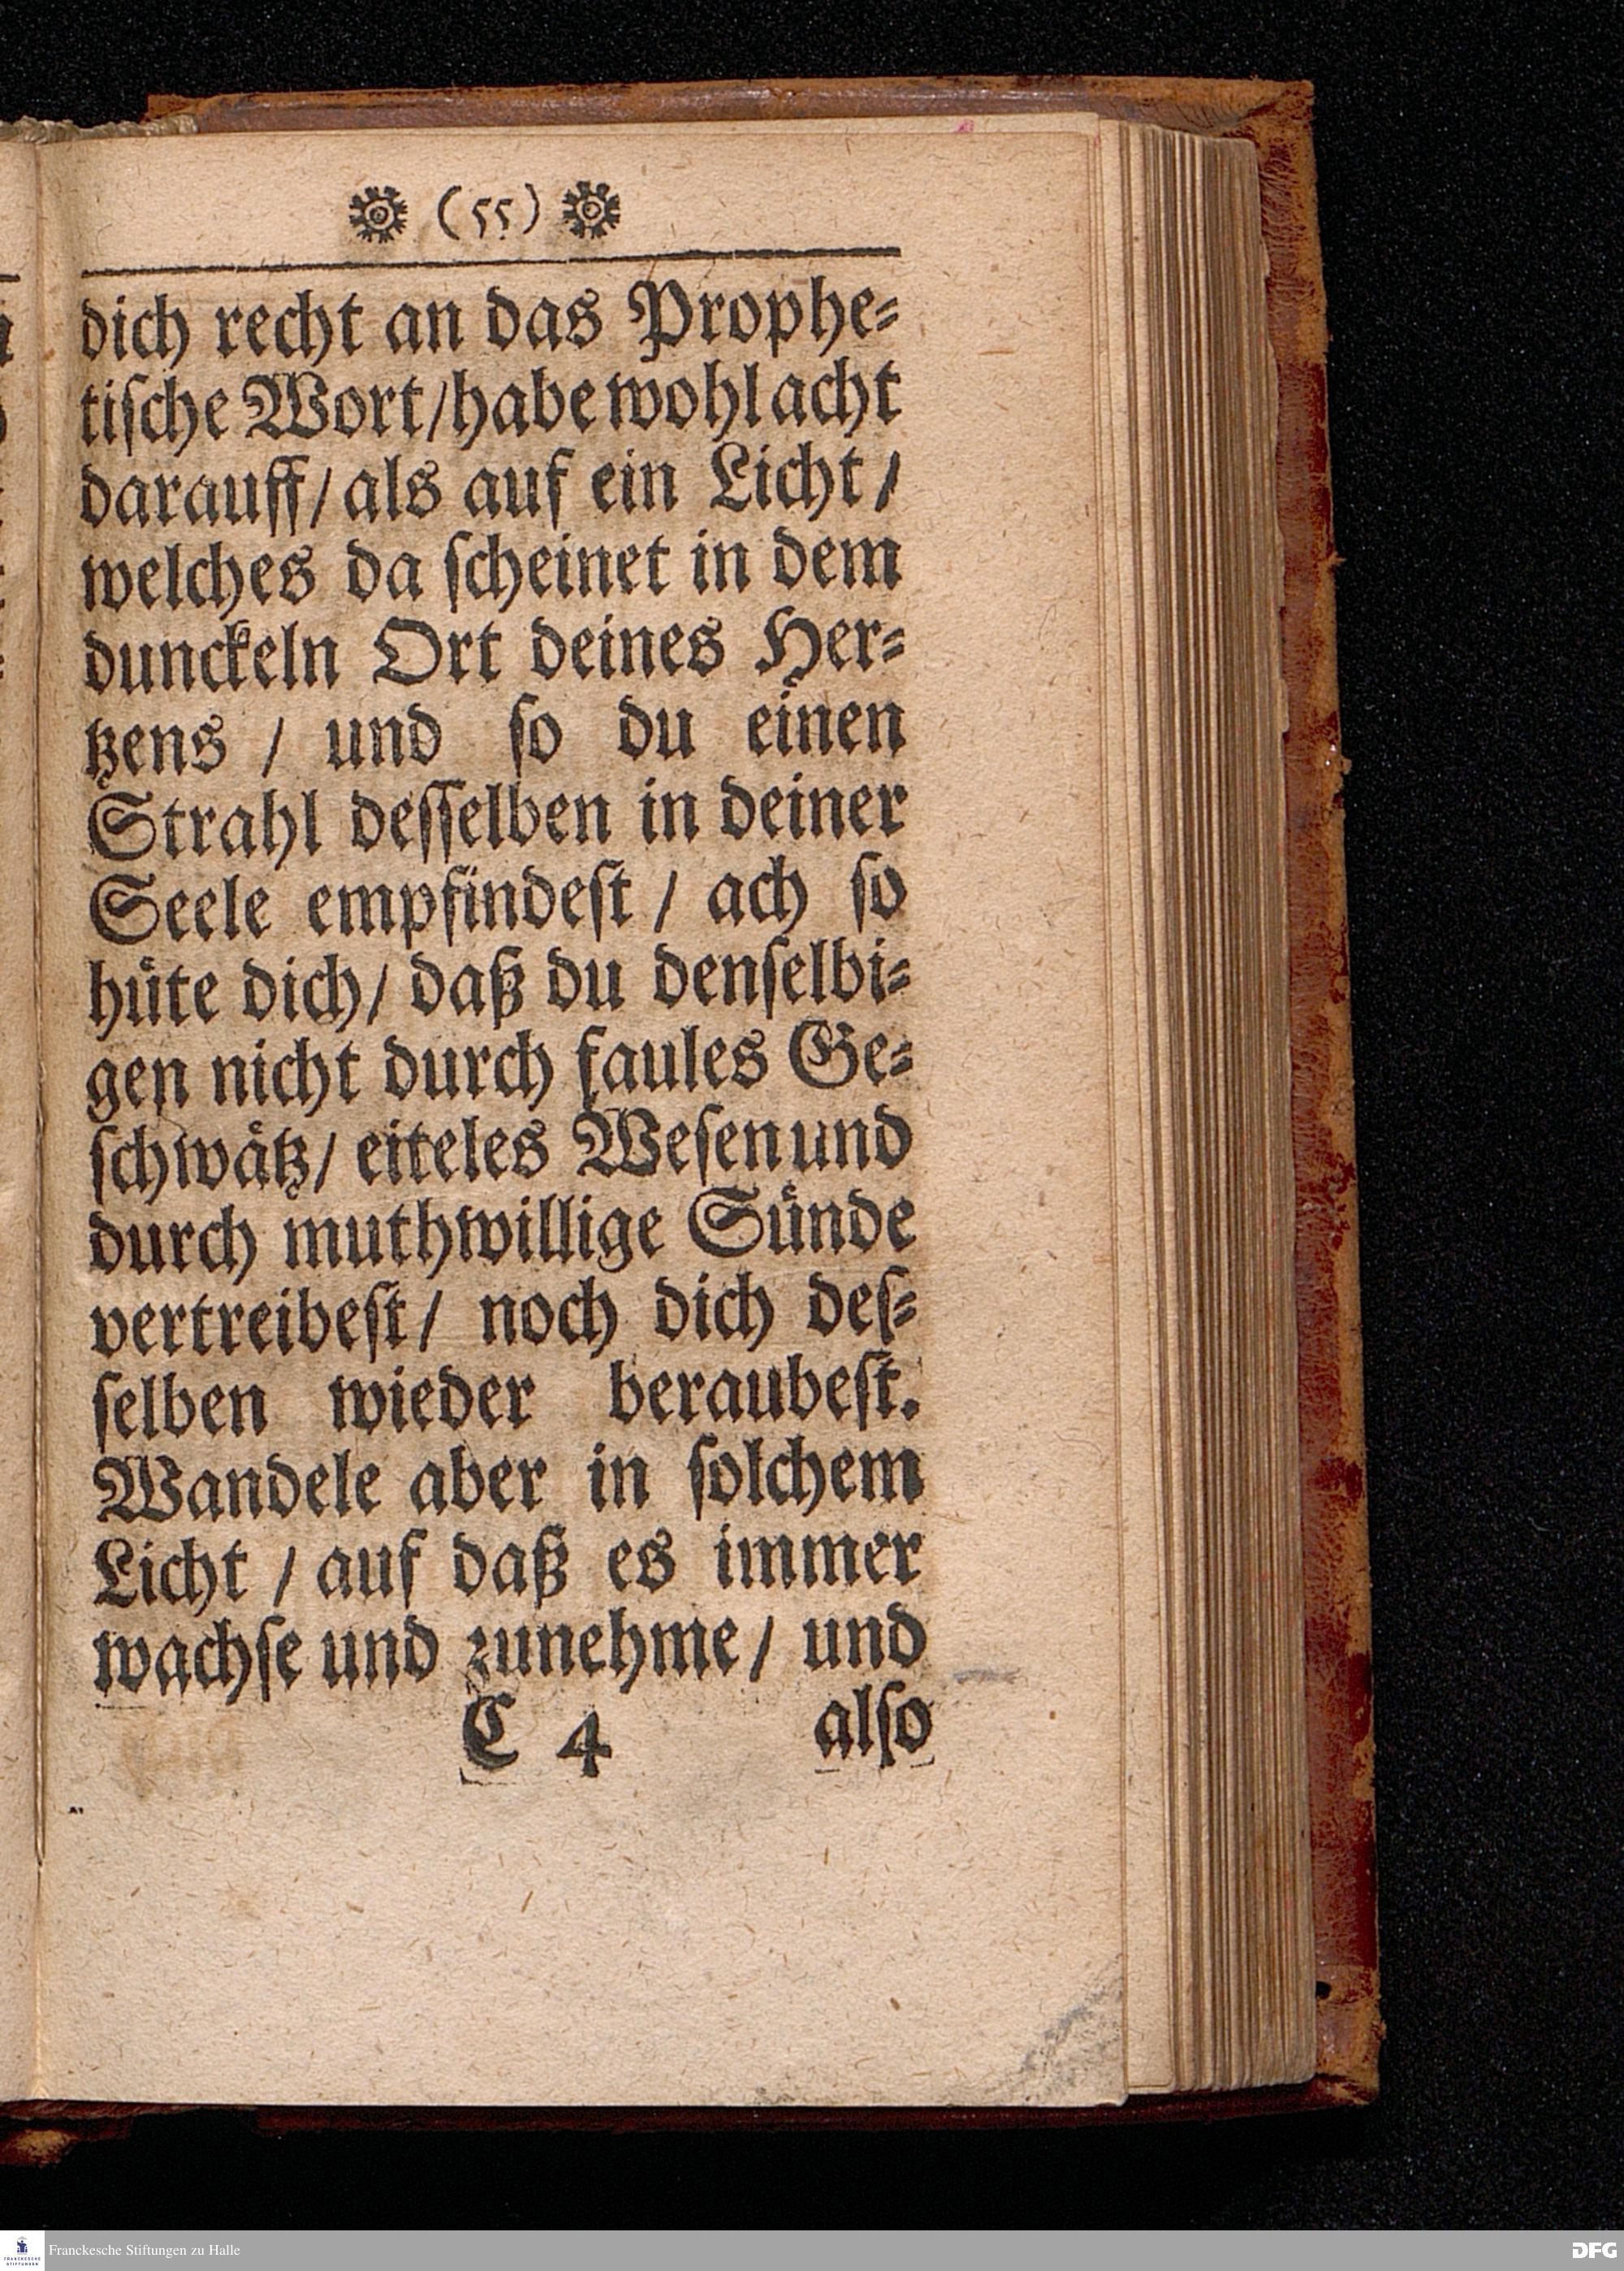 (55)
dich recht an das Prophe⸗
tiſche Wort/habe wohl acht
darauff/ als auf ein Licht/
welches da ſcheinet in dem
dunckeln Ort deines Her⸗
tzens / und ſo du einen
Strahl deſſelben in deiner
Seele empfindeſt / ach ſo
huͤte dich/ daß du denſelbi⸗
gen nicht durch faules Ge⸗
ſchwaͤtz/ eiteles Weſen und
durch muthwillige Suͤnde
vertreibeſt/ noch dich deſ⸗
ſelben wieder beraubeſt.
Wandele aber in ſolchem
Licht / auf daß es immer
wachſe und zunehme/ und
C 4 alſo
FRANCKESCHE STIFTUNGEN
Franckesche Stiftungen zu Halle
DFG